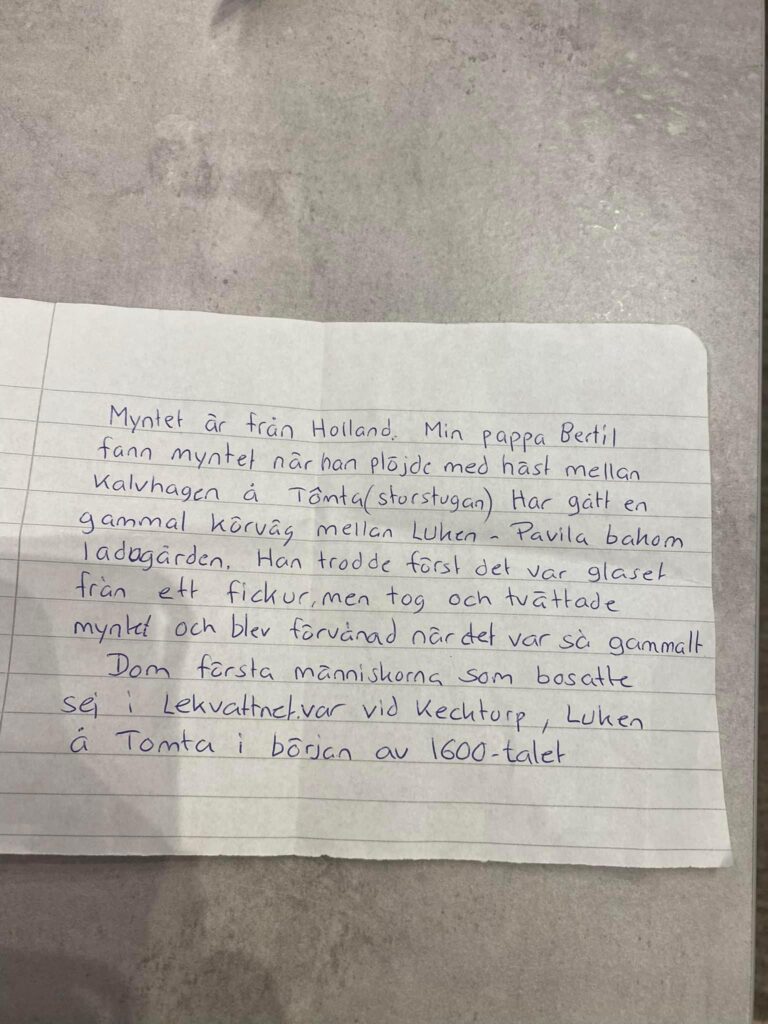 Myntet är från Holland. Min pappa Bertil
fann myntet när han plöjde med häst mellan
Kalvhagen å Tômta (storstugan) Har gått en
gammal körväg mellan Luken - Pavila bahom
ladogården. Han trodde först det var glaset
från ett fickur, men tog och tvättade
myntet och blev förvånad när det var så gammalt
Dom första människorna som bosatte
sej i Lekvattnet.var vid Kecktorp, Luken
å Tomta i början av 1600-talet